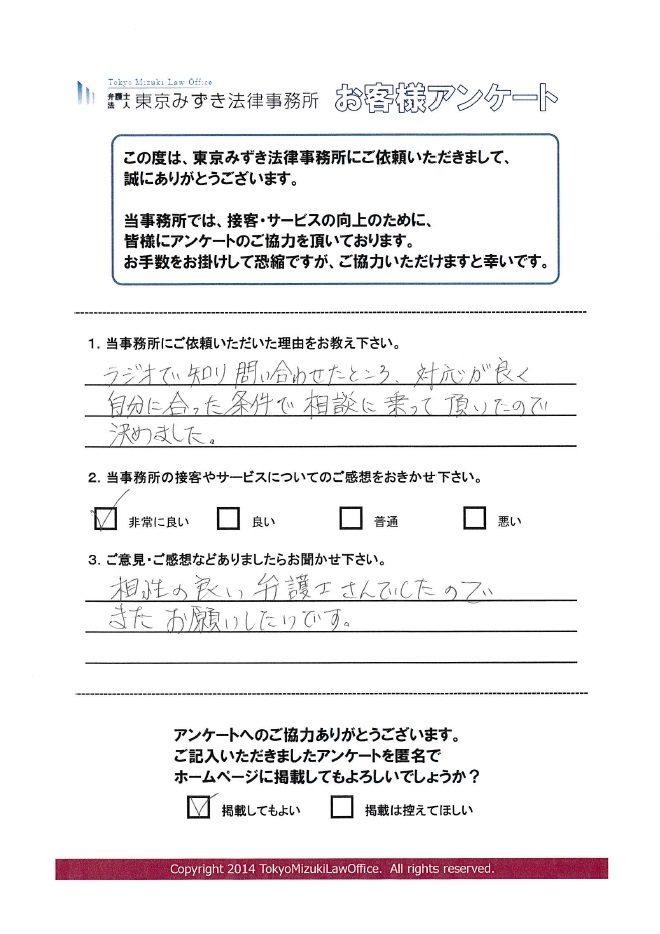 Tokyo Mizuki Law Office
弁護士法人 東京みずき法律事務所 お客様アンケート
この度は、東京みずき法律事務所にご依頼いただきまして、
誠にありがとうございます。
当事務所では、接客・サービスの向上のために、
皆様にアンケートのご協力を頂いております。
お手数をお掛けして恐縮ですが、ご協力いただけますと幸いです。
1. 当事務所にご依頼いただいた理由をお教え下さい。
ラジオで知り問い合わせたところ、対応が良く
自分に合った条件で相談に乗って頂いたので
決めました。
2. 当事務所の接客やサービスについてのご感想をおきかせ下さい。
☑ 非常に良い □ 良い □ 普通 □ 悪い
3. ご意見・ご感想などありましたらお聞かせ下さい。
相性の良い弁護士さんでしたので
またお願いしたいです。
アンケートへのご協力ありがとうございます。
ご記入いただきましたアンケートを匿名で
ホームページに掲載してもよろしいでしょうか？
☑ 掲載してもよい □ 掲載は控えてほしい
Copyright 2014 TokyoMizukiLawOffice. All rights reserved.